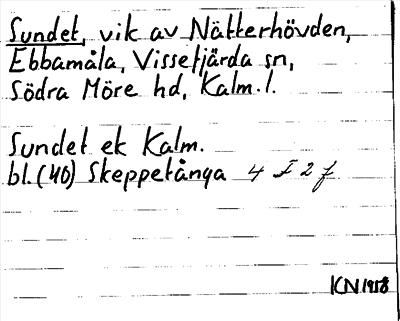 Sundet, vik av Nätterhövden,
Ebbamåla, Vissefjärda sn,
Södra Möre hd, Kalm. l.
Sundet ek Kalm.
bl. (40) Skeppetånga 4 I 2 f
KN 1958